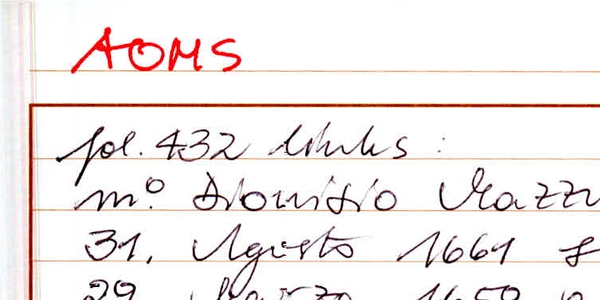 AOMS
fol. 432 links :
m.º Dionisio Mazzu
31. Agosto 1661 s
29 Marzo 1659